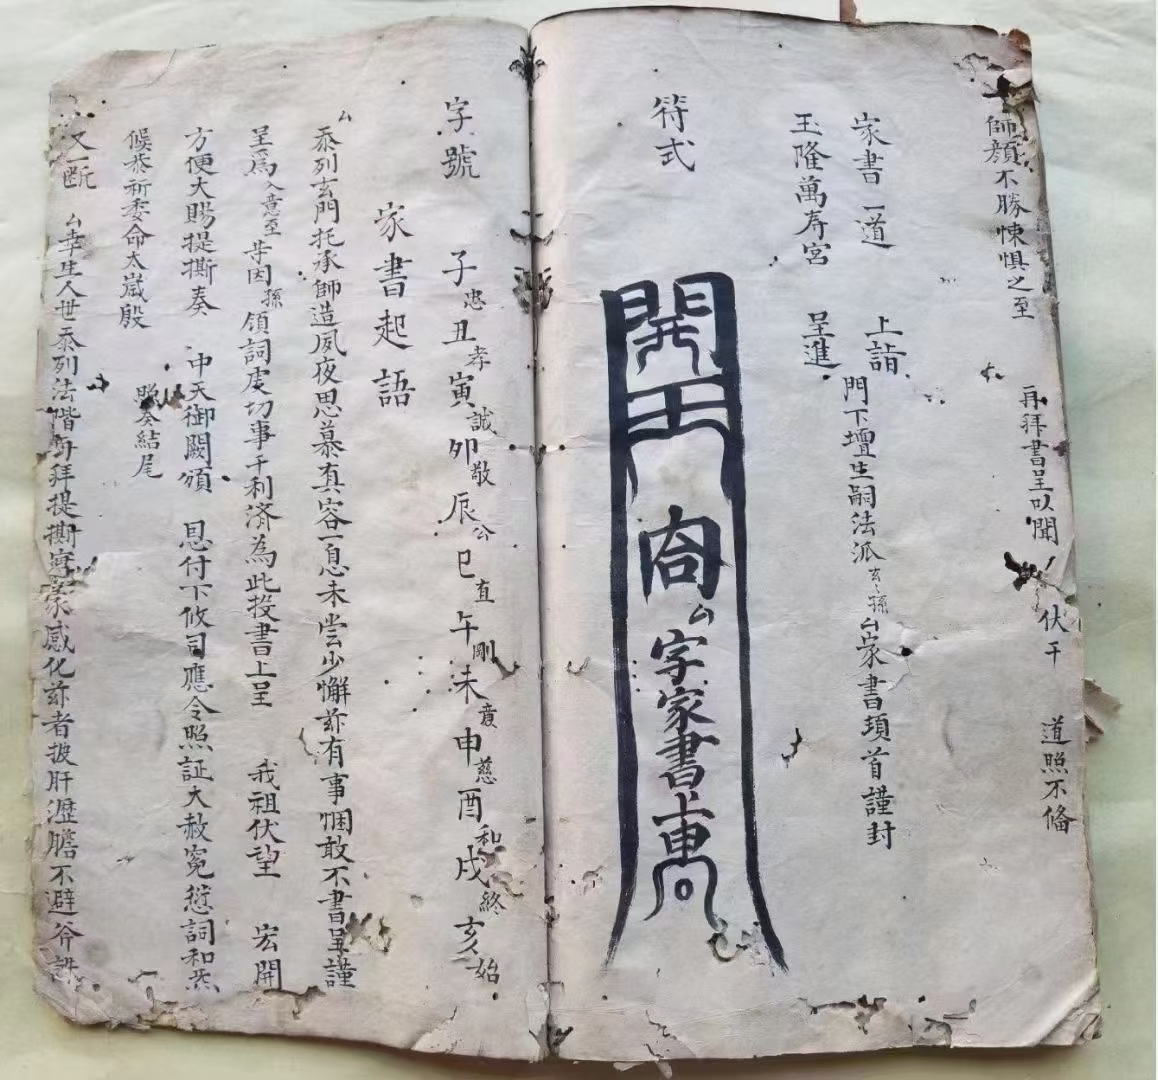 師顏不勝悚惧之至
再拜書呈以聞 伏干 道照不俻
家書一道 上詣
玉隆萬寿宮 呈進
門下壇生嗣法派玄玄孫厶家書頊首謹封
符式
厶字家書上
字號 子忠丑孝寅誠卯敬辰公巳直午剛未亷申慈酉和戌終亥始
家書起語
厶忝列玄門托承師造夙夜思慕真容一息未尝少懈茲有事悃敢不書呈謹
呈為入意至芉因孫領詞虔切事干利済為此投書上呈 我祖伏望 宏開
方便大賜提撕奏 中天御闕頒 恩付下攸司應令照証大赦冤愆詞和炁
候恭祈委命大嵗殿 照奏結尾
又一断 厶幸生人世忝列法階每拜提撕寔蒙感化茲者披肝瀝膽不避斧誅